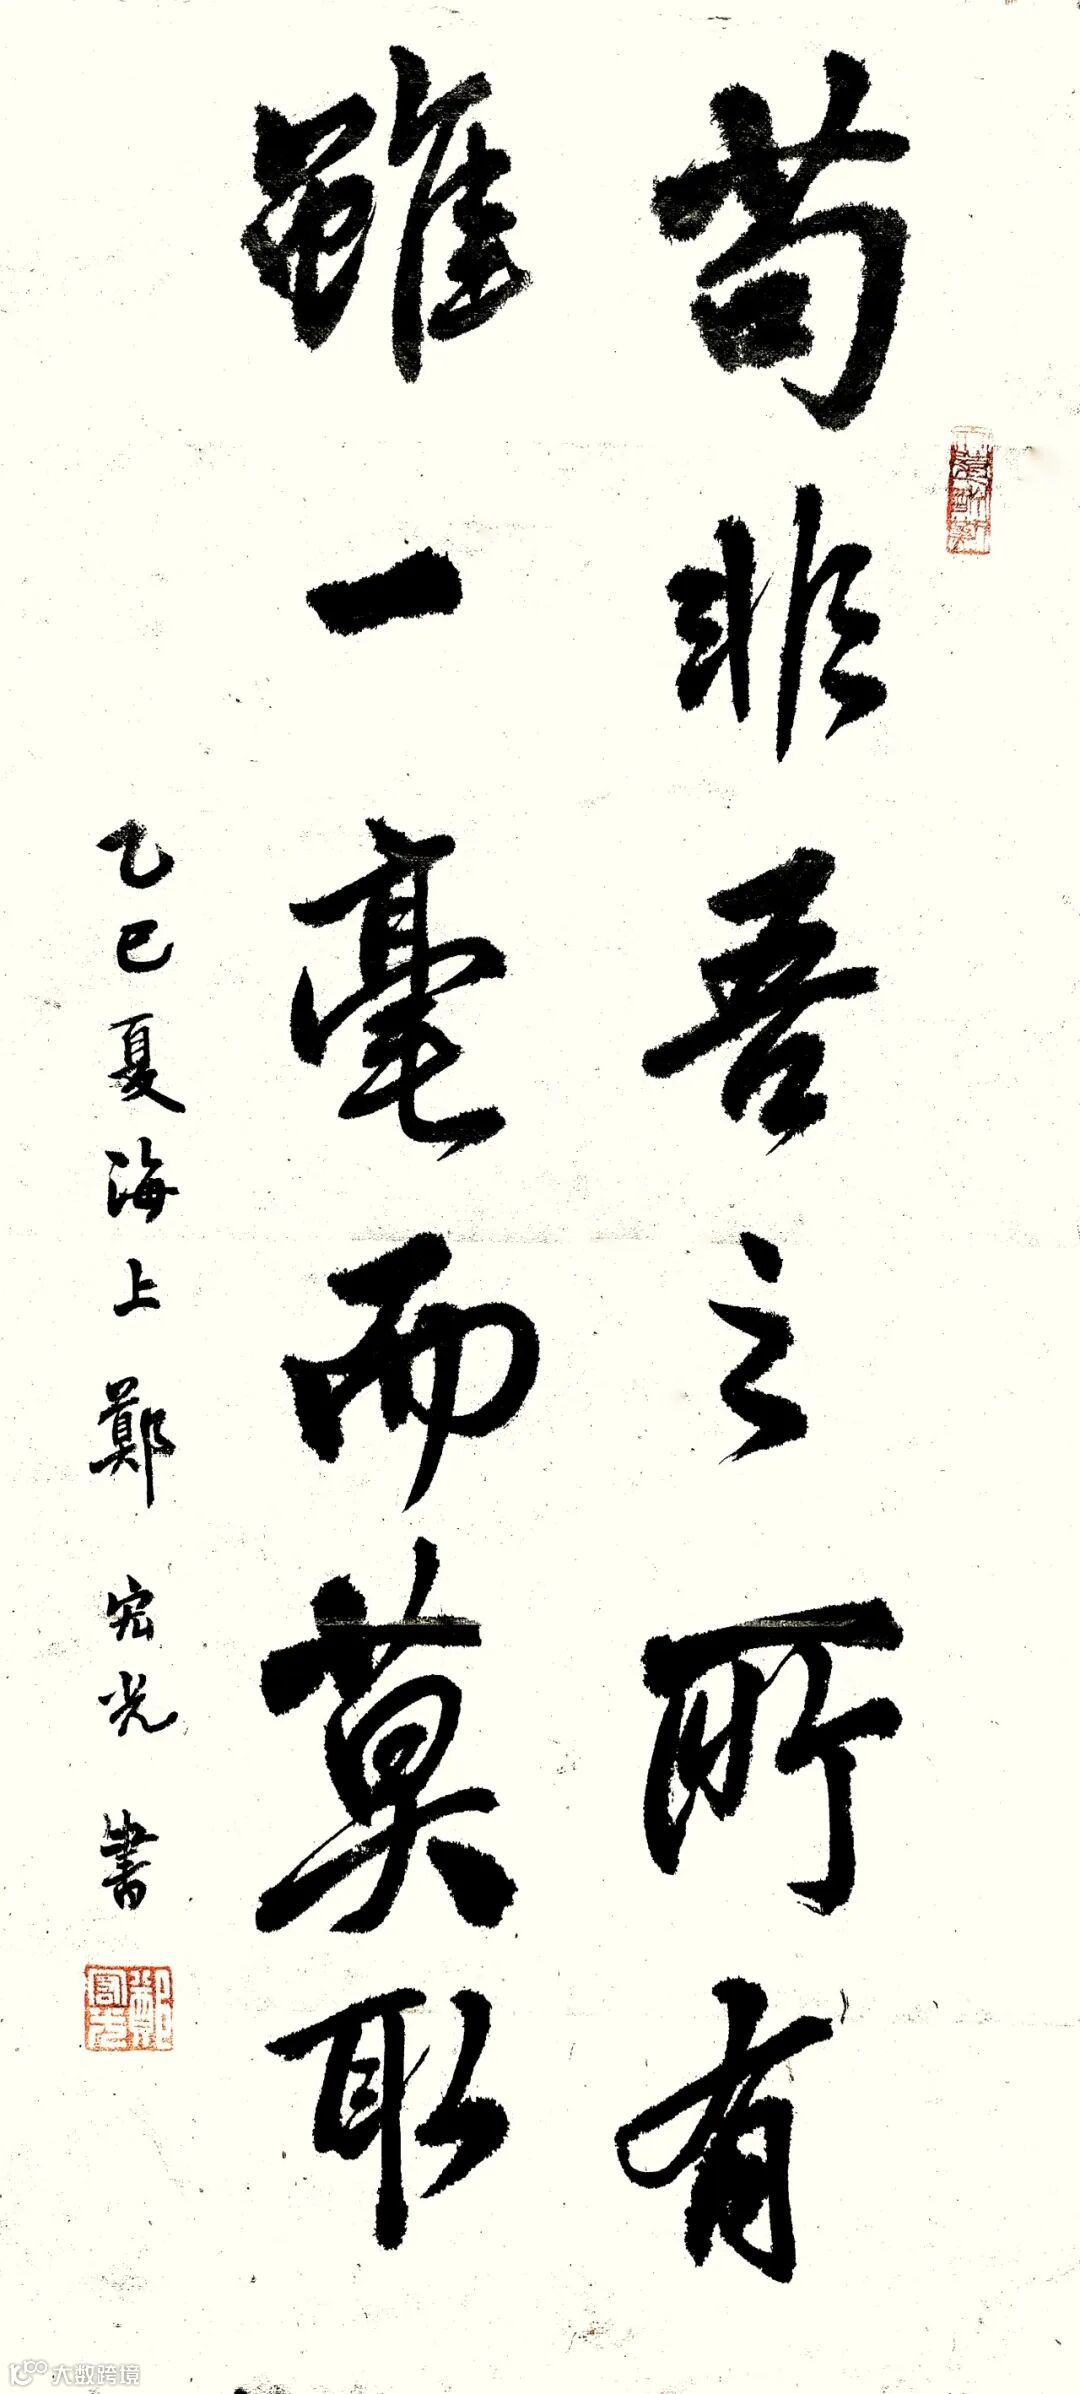 苟非吾之所有
雖一毫而莫取
乙巳夏海上鄭宏光書
大数跨境